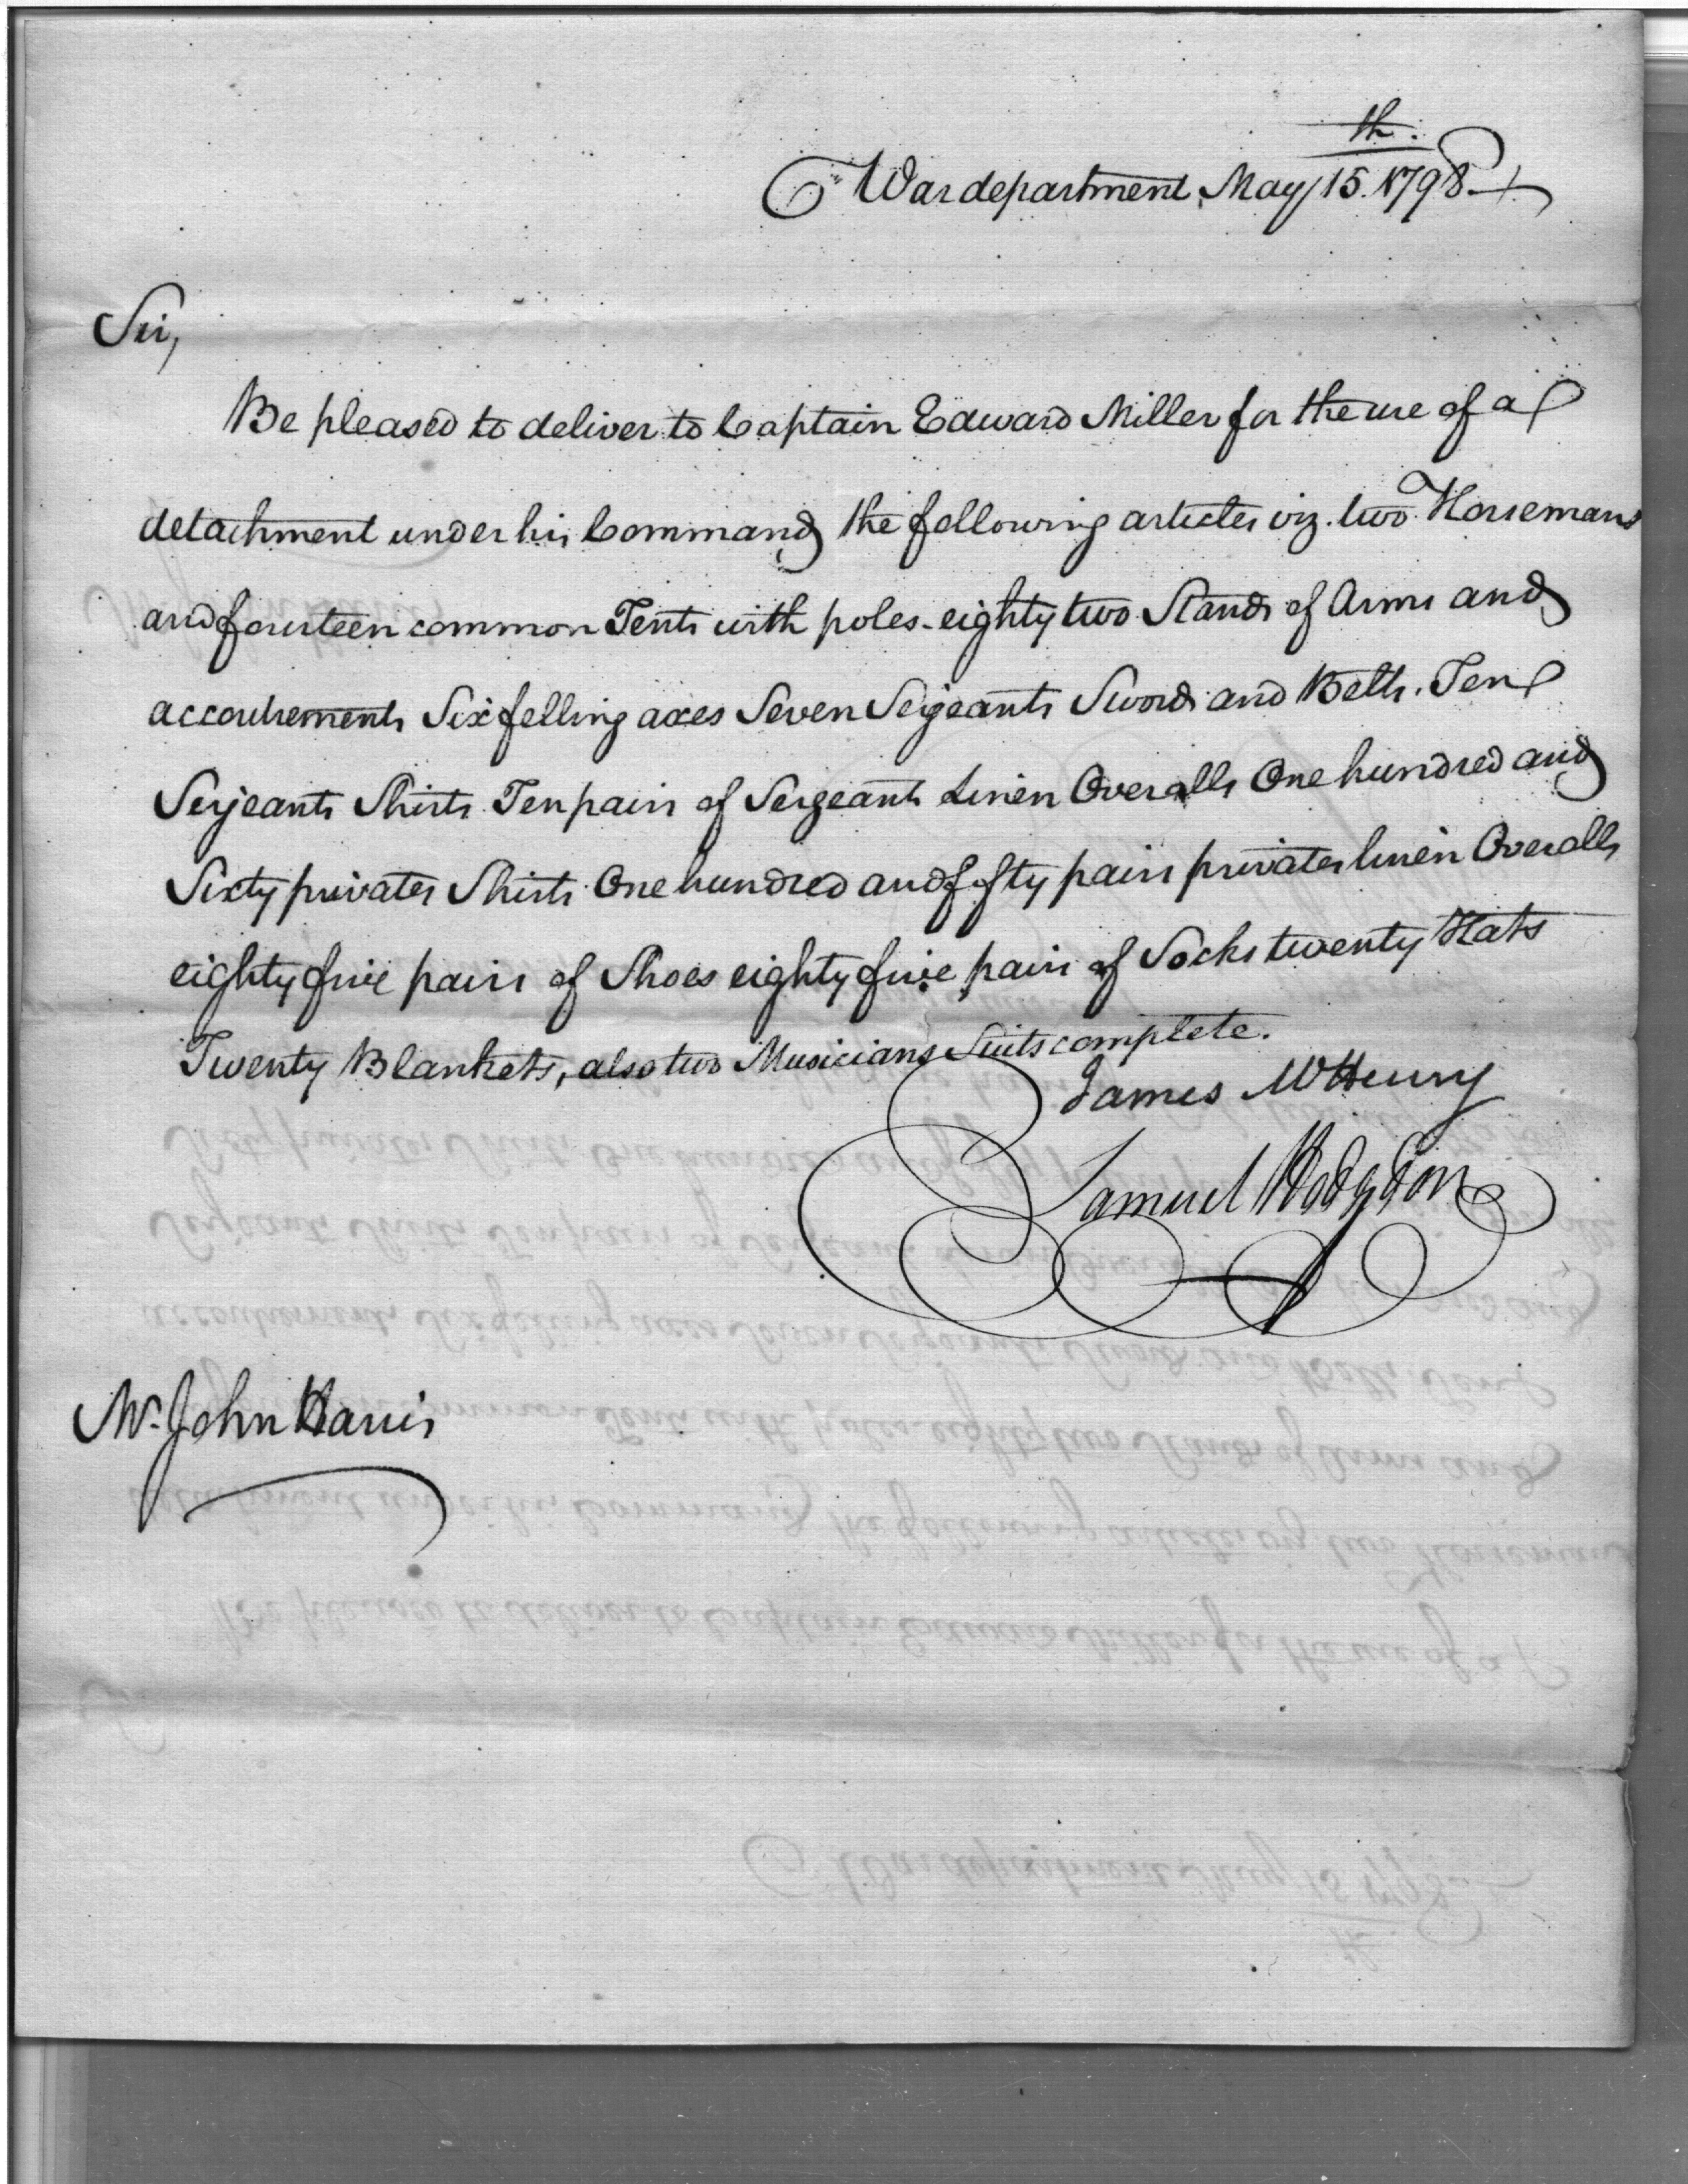 War department May 15th. 1798
Sir,
Be pleased to deliver to Captain Edward Miller for the use of a
detachment under his Command the following articles viz. two Horsemans
and fourteen common Tents with poles - eighty two Stands of Arms and
accoutrements Six felling axes Seven Serjeants Swords and Belts. Ten
Serjeants Shirts Ten pairs of Sergeants Linen Overalls One hundred and
Sixty privates Shirts One hundred and fifty pairs privates linen Overalls
eighty five pairs of Shoes eighty five pairs of Socks twenty Hats
Twenty Blankets, also two Musicians Suits complete.
James McHenry
Samuel Hodgdon
Mr. John Harris